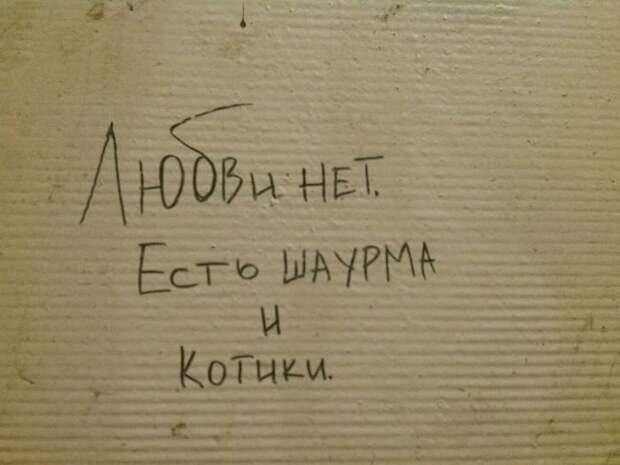 Любви нет.
Есть шаурма
и
Котики.